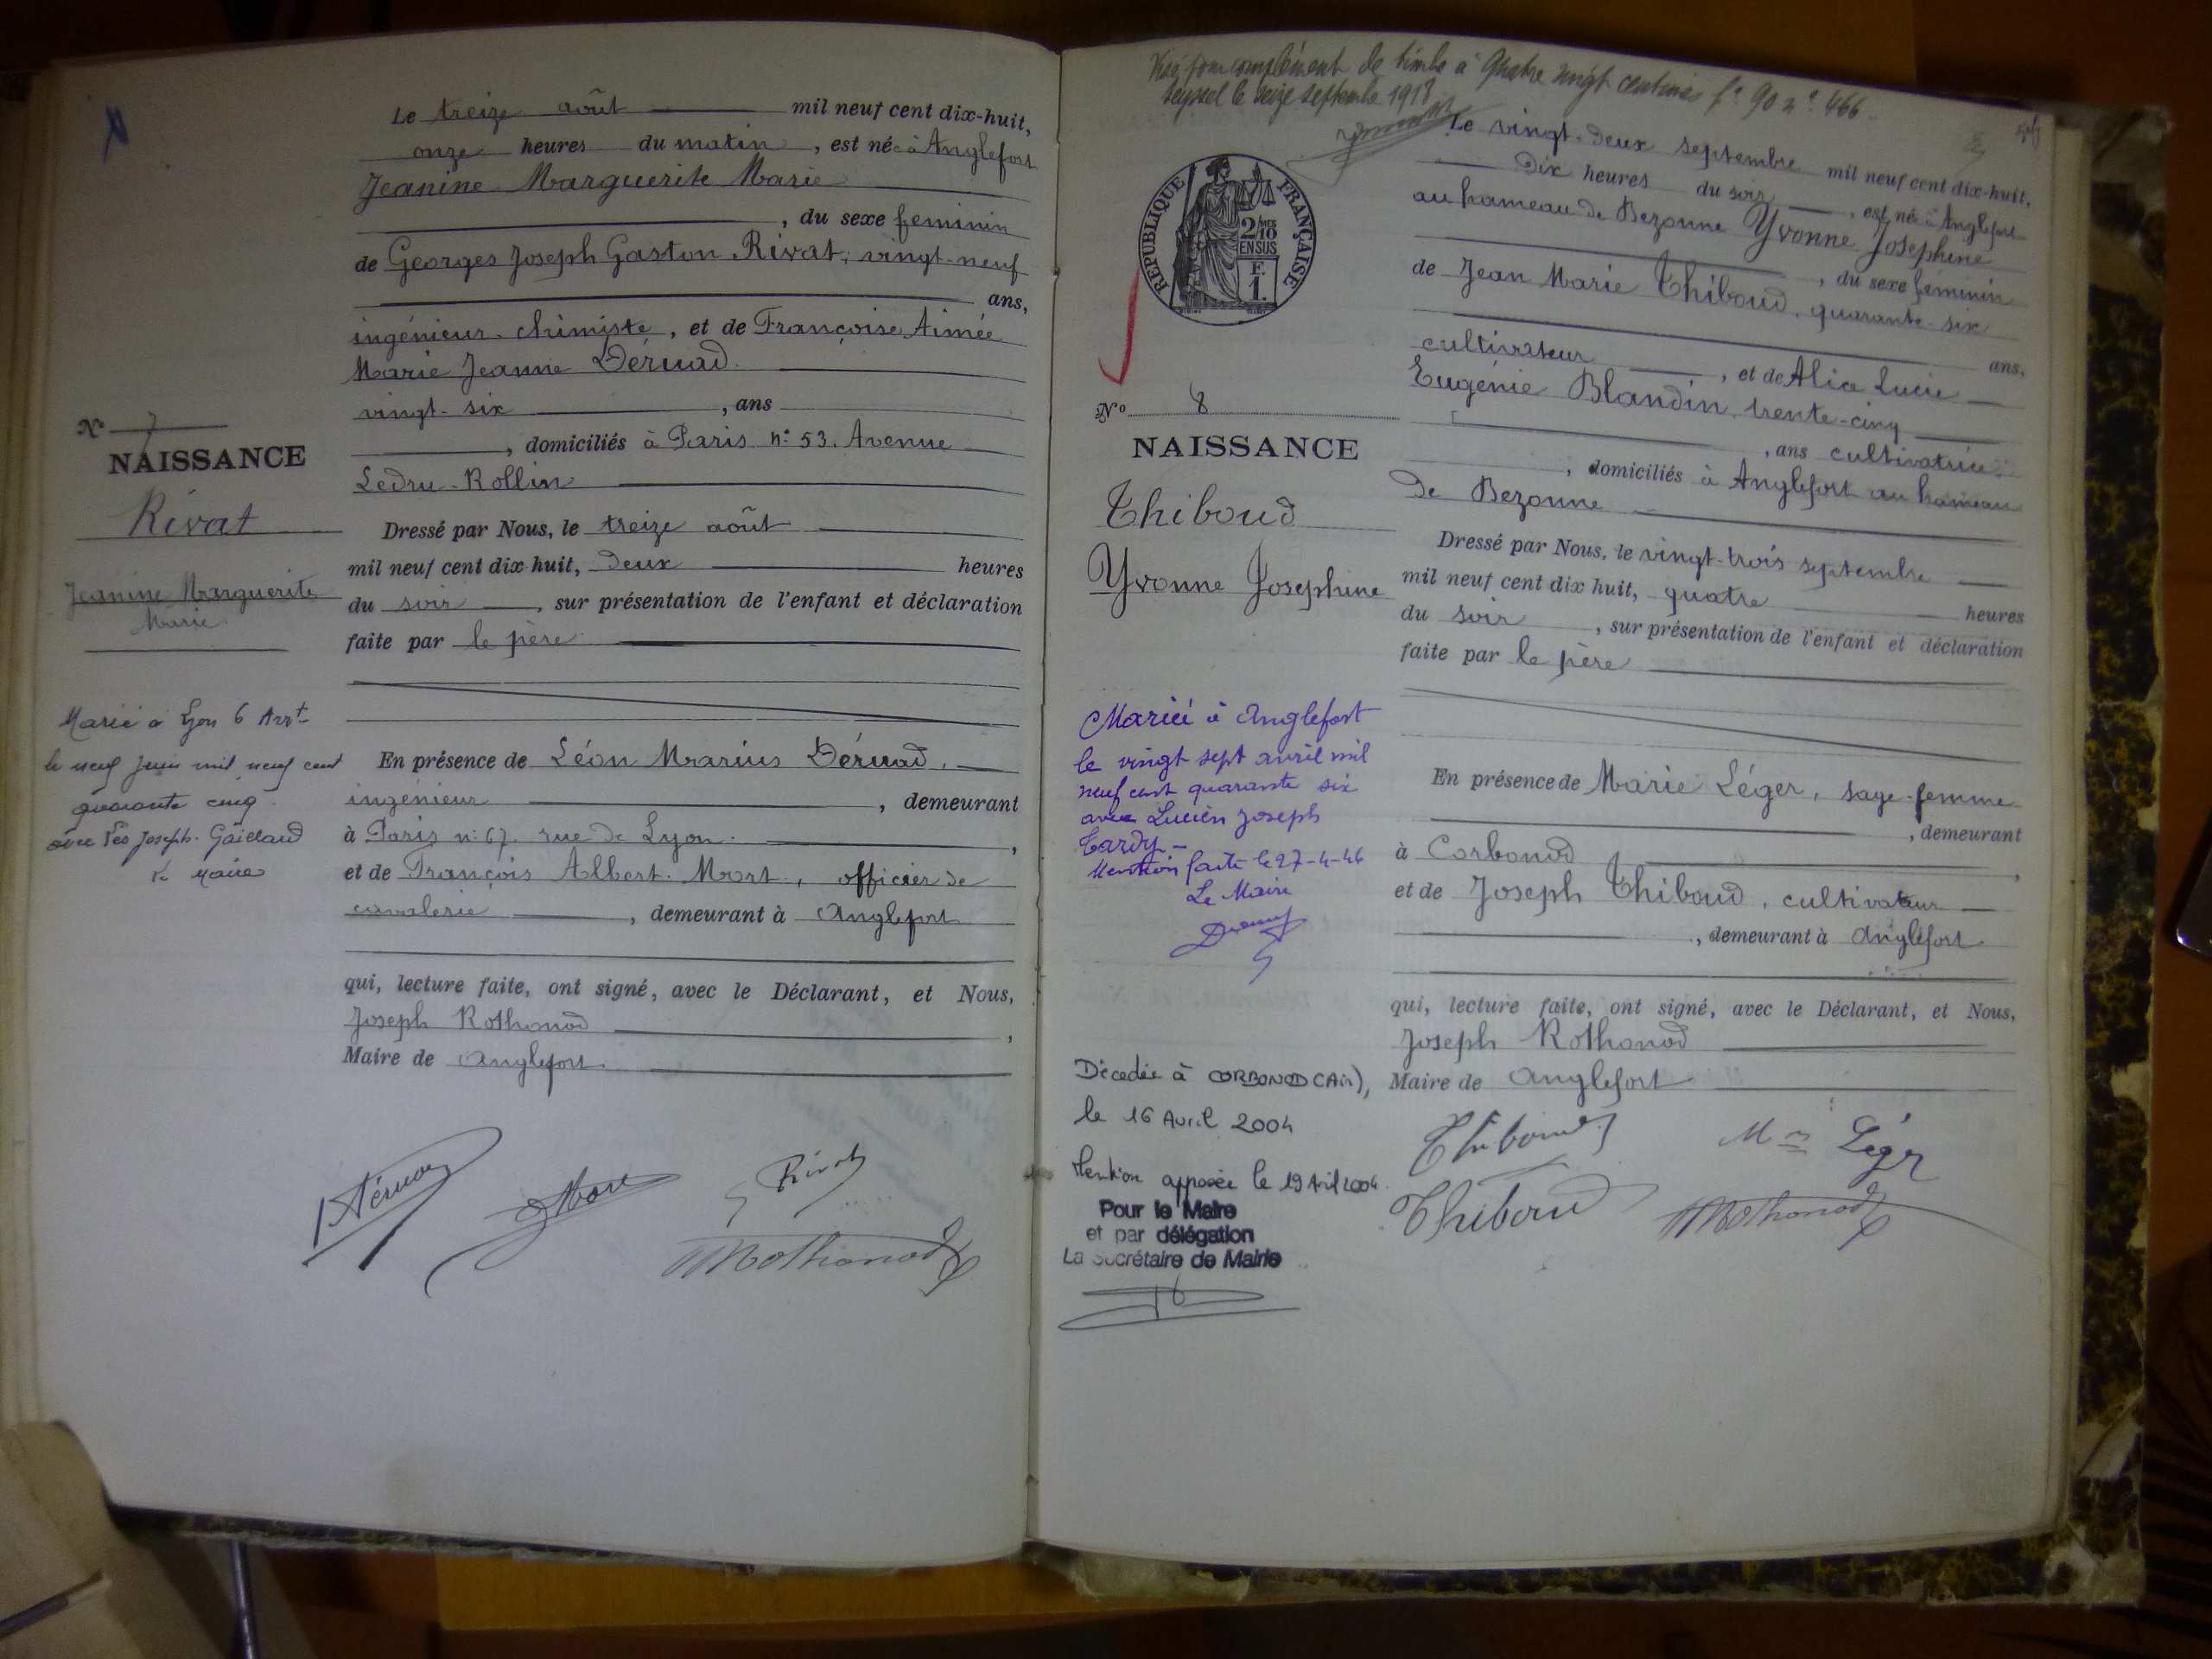 Le treize août mil neuf cent dix-huit,
onze heures du matin, est née à Anglefort
Jeanine Marguerite Marie
, du sexe feminin
de Georges Joseph Gaston Rivat, vingt-neuf
ans,
ingénieur-chimiste, et de Françoise Aimée
Marie Jeanne Déruad.
vingt-six, ans
, domiciliés à Paris n: 53. Avenue
Ledru-Rollin
Dressé par Nous, le treize août
mil neuf cent dix-huit, deux heures
du soir, sur présentation de l'enfant et déclaration
faite par le père
En présence de Léon Marius Déruad,
ingénieur, demeurant
à Paris n: 67. rue de Lyon.,
et de François Albert Mort, officier de
cavalerie, demeurant à Anglefort
qui, lecture faite, ont signé, avec le Déclarant, et Nous,
Joseph Rothonod,
Maire de Anglefort
N° 7
NAISSANCE
Rivat
Jeanine Marguerite
Marie
Marié à Lyon 6 Arrt
le neuf Juin mil neuf cent
quarante cinq
avec Léo Joseph Gaillard
Le Maire
Rivat
Rothonod
Visé pour complément de timbre à Quatre vingt centimes f° 90 n° 466
Seyssel le seize septembre 1918
RÉPUBLIQUE FRANÇAISE
2/10
EN SUS
F.
1.
Le vingt-deux septembre mil neuf cent dix-huit,
Dix heures du soir, est née à Anglefort
au hameau de Bezonne Yvonne Josephine
, du sexe féminin
de Jean Marie Thiboud, quarante-six
ans,
cultivateur, et de Alice Lucie
Eugénie Blandin, trente-cinq
, ans cultivatrice
, domiciliés à Anglefort au hameau
de Bezonne
Dressé par Nous, le vingt-trois septembre
mil neuf cent dix huit, quatre heures
du soir, sur présentation de l'enfant et déclaration
faite par le père
En présence de Marie Léger, sage-femme
, demeurant
à Corbonod,
et de Joseph Thiboud, cultivateur
, demeurant à Anglefort
qui, lecture faite, ont signé, avec le Déclarant, et Nous,
Joseph Rothonod
Maire de Anglefort
N° 8
NAISSANCE
Thiboud
Yvonne Josephine
Mariée à Anglefort
le vingt sept avril mil
neuf cent quarante six
avec Lucien Joseph
Tardy -
Mention faite le 27-4-46
Le Maire
Décedée à CORBONOD (Ain),
le 16 Avril 2004
Mention apposée le 19 Avril 2004
Pour le Maire
et par délégation
La Secrétaire de Mairie
Thiboud
Mme Léger
Thiboud
Rothonod